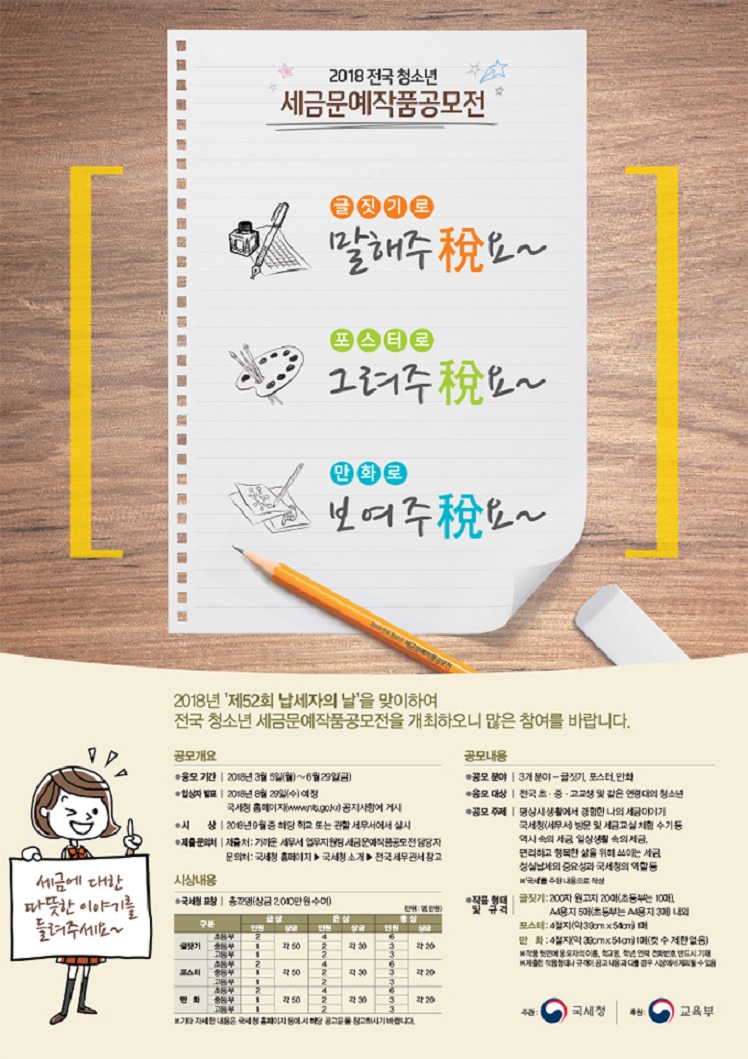 2018 전국 청소년
세금문예작품공모전
글짓기로
말해주稅요~
포스터로
그려주稅요~
만화로
보여주稅요~
2018년 '제52회 납세자의 날'을 맞이하여
전국 청소년 세금문예작품공모전을 개최하오니 많은 참여를 바랍니다.
공모개요
●응모 기간 | 2018년 3월 5일(월) ~ 6월 29일(금)
●입상자 발표 | 2018년 8월 29일(수) 예정
국세청 홈페이지(www.nts.go.kr) 공지사항에 게시
●시 상 | 2018년 9월 중 해당 학교 또는 관할 세무서에서 실시
●제출·문의처 | 제출처 : 가까운 세무서 업무지원팀 세금문예작품공모전 담당자
문의처 : 국세청 홈페이지 ▶ 국세청 소개 ▶ 전국 세무관서 참고
시상내용
●국세청 표창 | 총 72명(상금 2,040만원 수여)
(단위 : 명, 만원)
구분 금 상 은 상 동 상
인원 상금 인원 상금 인원 상금
글짓기 초등부 2 각 50 4 각 30 6 각 20
중등부 1 2 3
고등부 1 2 3
포스터 초등부 2 각 50 4 각 30 6 각 20
중등부 1 2 3
고등부 1 2 3
만 화 초등부 2 각 50 4 각 30 6 각 20
중등부 1 2 3
고등부 1 2 3
※ 기타 자세한 내용은 국세청 홈페이지 등에서 해당 공고문을 참고하시기 바랍니다.
공모내용
●공모 분야 | 3개 분야 – 글짓기, 포스터, 만화
●응모 대상 | 전국 초·중·고교생 및 같은 연령대의 청소년
●공모 주제 | 평상시 생활에서 경험한 나의 세금이야기
국세청(세무서) 방문 및 세금교실 체험 수기 등
역사 속의 세금, 일상생활 속의 세금,
편리하고 행복한 삶을 위해 쓰이는 세금,
성실납세의 중요성과 국세청의 역할 등
※'국세'를 주된 내용으로 작성
●작품 형태 및 규격 | 글짓기 : 200자 원고지 20매(초등부는 10매),
A4용지 5매(초등부는 A4용지 3매) 내외
포스터 : 4절지(약 39cm x 54cm) 1매
만 화 : 4절지(약 39cm x 54cm) 1매(컷 수 제한 없음)
※작품 뒷면에 응모자의 이름, 학교명, 학년, 연락 전화번호 반드시 기재
※제출한 작품형태나 규격이 공고 내용과 다를 경우 시상에서 제외될 수 있음
세금에 대한
따뜻한 이야기를
들려주세요~
주관 : 국세청 | 후원 : 교육부